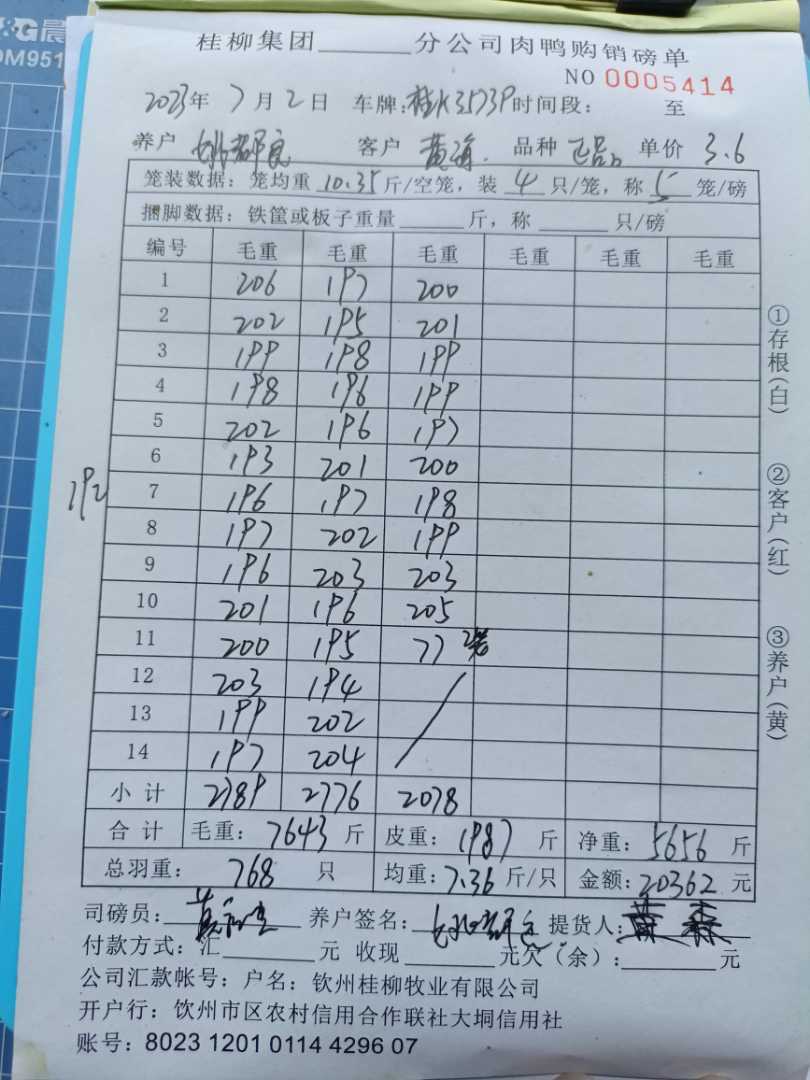 &G晨
DM951
桂柳集团______分公司肉鸭购销磅单
NO 0005414
2023年 7月2日 车牌:桂K3573P时间段: 至
养户 客户 黄海 品种 正品 单价 3.6
笼装数据: 笼均重 10.35 斤/空笼, 装 4 只/笼, 称 5 笼/磅
捆脚数据: 铁筐或板子重量______斤, 称______只/磅
编号 毛重 毛重 毛重 毛重 毛重 毛重
1 206 197 200
2 202 195 201
3 199 198 199
4 198 196 199
5 202 196 197
6 193 201 200
192
7 196 197 198
8 197 202 199
9 196 203 203
10 201 196 205
11 200 195 77 2笼
12 203 194
13 199 202
14 197 204
小计 2789 2776 2078
合计 毛重: 7643 斤 皮重: 1987 斤 净重: 5656 斤
总羽重: 768 只 均重: 7.36 斤/只 金额: 20362 元
司磅员: 养户签名: 提货人:
付款方式: 汇______元 收现______元欠(余):______元
公司汇款帐号: 户名: 钦州桂柳牧业有限公司
开户行: 钦州市区农村信用合作联社大垌信用社
账号: 8023 1201 0114 4296 07
①存根(白)
②客户(红)
③养户(黄)